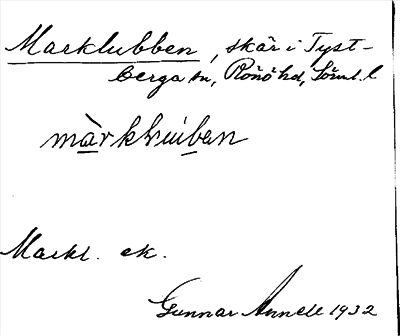 Marklubben, skär i Tyst-
berga sn, Rönö hd, Sörml. l
Markl. ek.
Gunnar Annell 1932